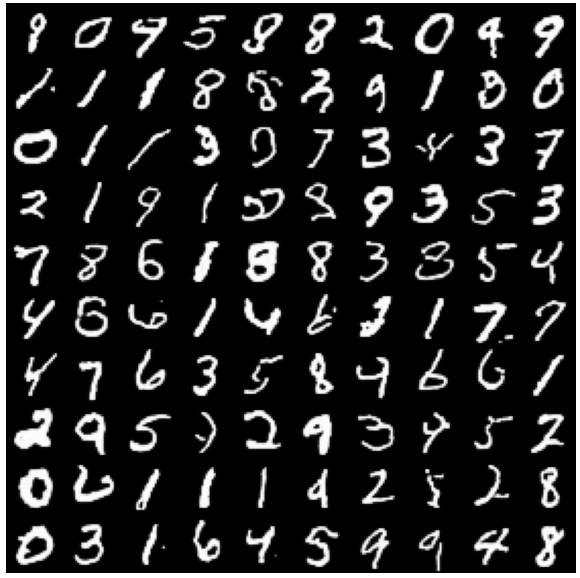 9 0 9 5 8 8 2 0 9 9
1 1 1 8 8 3 9 1 8 0
0 1 1 3 9 7 3 4 3 7
2 1 9 1 8 9 3 5 3
7 8 6 1 8 8 3 8 5 4
4 6 6 1 4 6 3 1 7 7
4 7 6 3 5 8 4 6 6 1
2 9 5 2 9 3 4 5 2
0 6 1 1 1 9 2 5 2 8
0 3 1 6 4 5 9 9 4 8